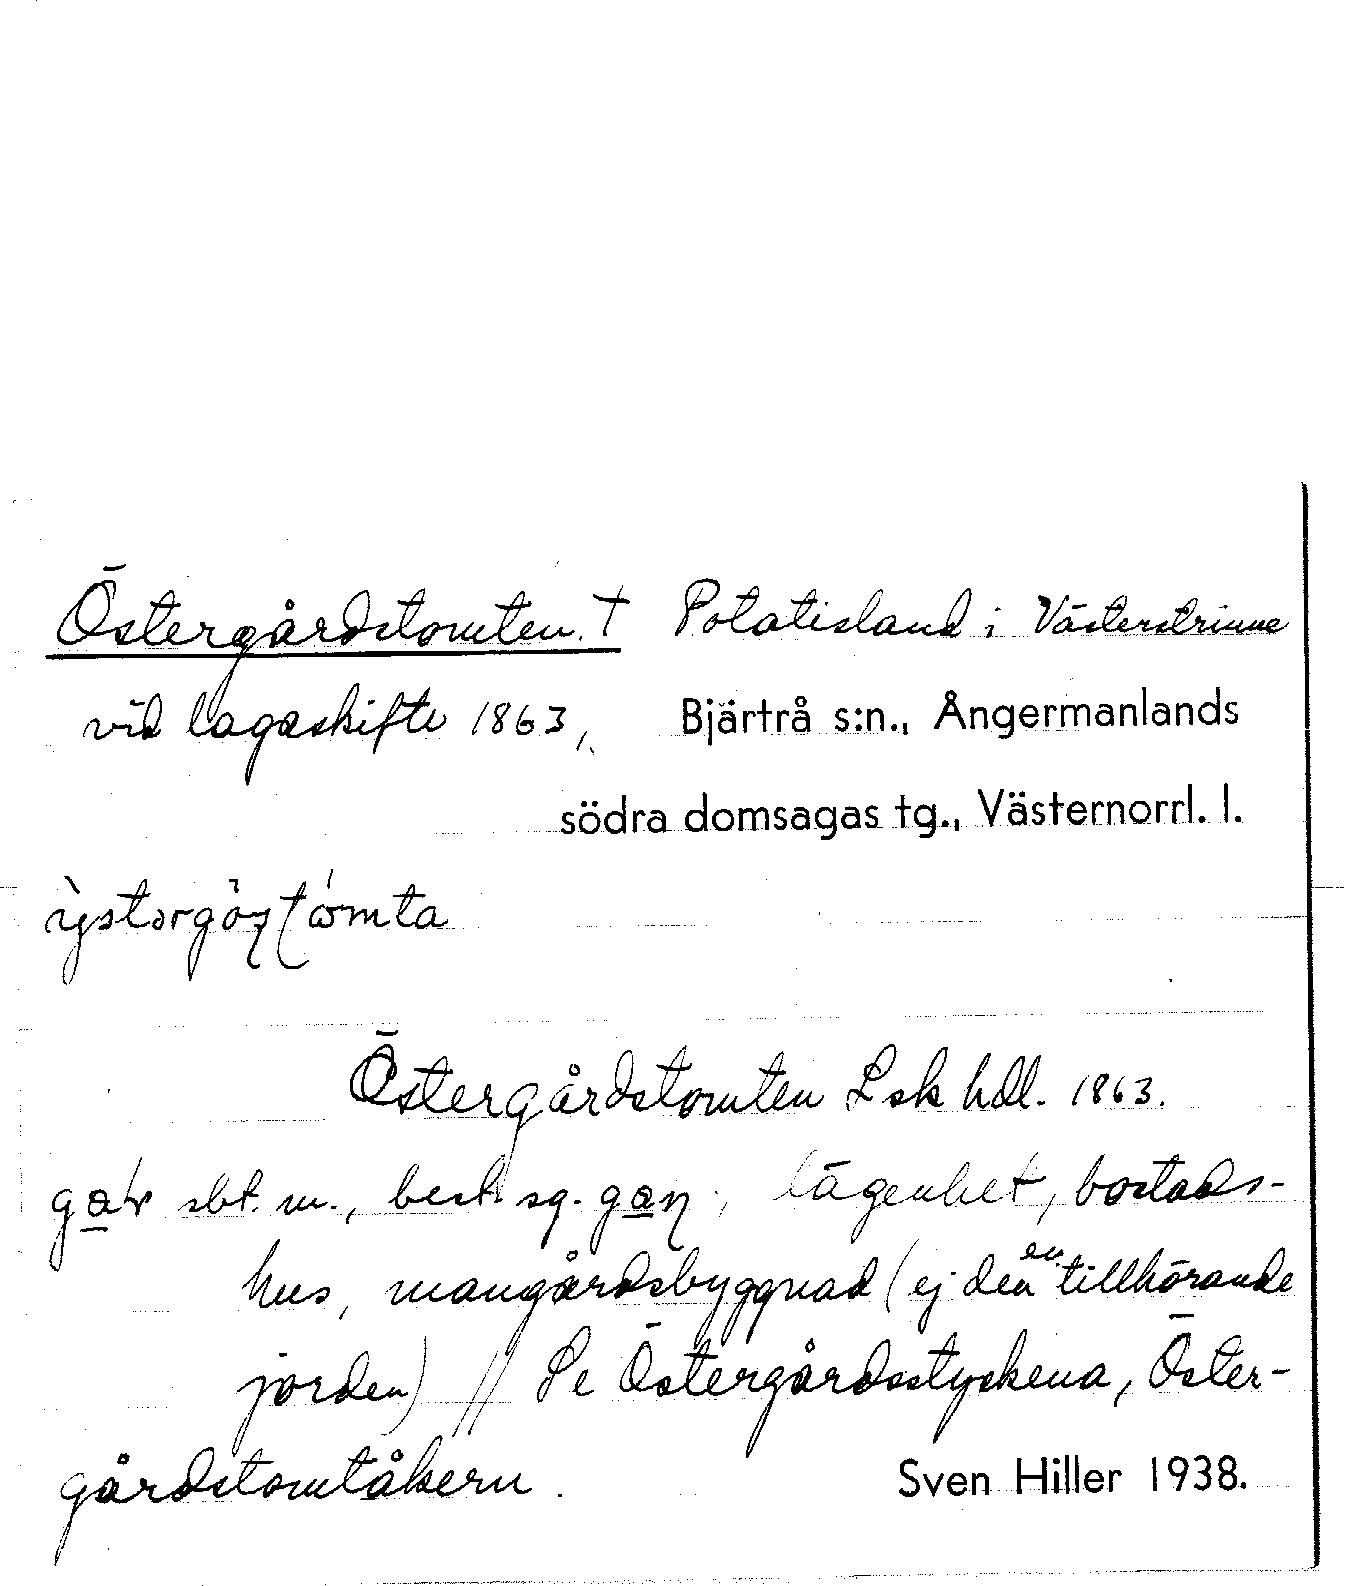 Östergårdstomten. † Potatisland i Västerstrinne
vid lagaskifte 1863, Bjärtrå s:n., Ångermanlands
södra domsagas tg., Västernorrl. l.
Östergårdstomten Lsk hdl. 1863.
sbt. m., best. sg. lägenhet, bostads-
hus, mangårdsbyggnad (ej den en tillhörande
jorden) // Se Östergårdsstyckena, Öster-
gårdstomtåkern. Sven Hiller 1938.